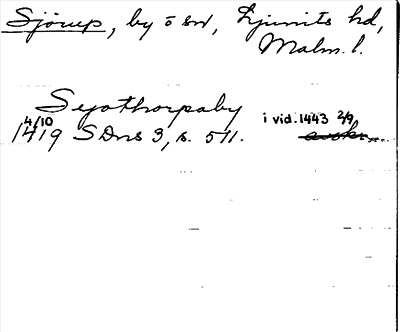 Sjörup, by o sn, Ljunits hd,
Malm. l.
Syothorpaby
4/10 1419 SDns 3, s. 511. i vid. 1443 2/9